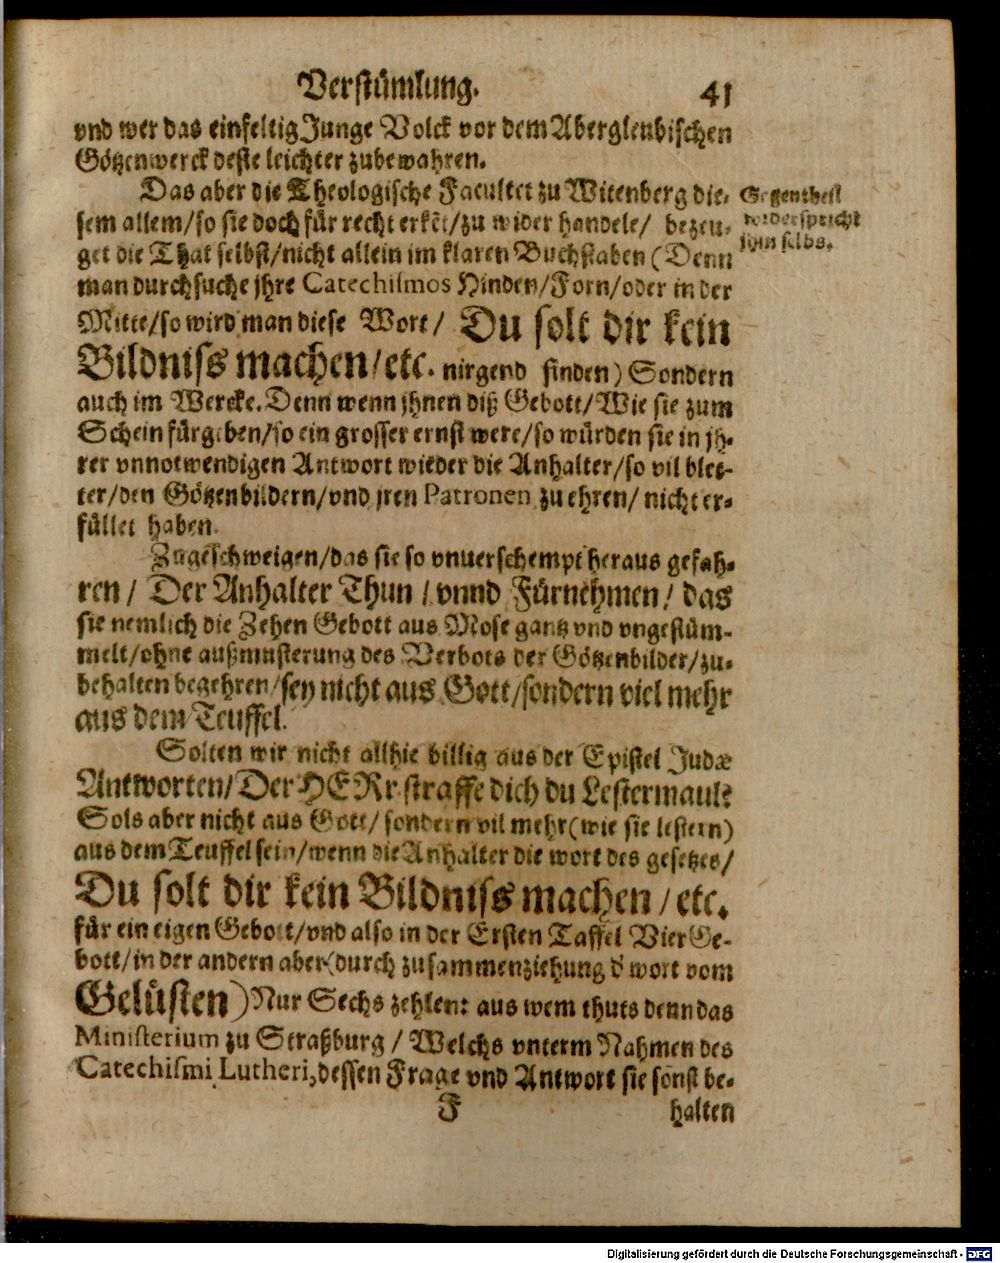 Verstümlung. 41
vnd wer das einfeltig Junge Volck vor dem Abergleubischen
Götzenwerck deste leichter zubewahren.
Das aber die Theologische Facultet zu Witenberg die-
sem allem/so sie doch für recht erkēt/zu wider handele/ bezeu-
get die That selbst/nicht allein im klaren Buchstaben (Denn
man durchsuche jhre Catechismos Hinden/Forn/oder in der
Mitte/so wird man diese Wort/ Du solt dir kein
Bildniss machen/etc. nirgend finden) Sondern
auch im Wercke. Denn wenn jhnen diß Gebott/Wie sie zum
Schein fürgeben/so ein grosser ernst were/so würden sie in jh-
rer vnnotwendigen Antwort wieder die Anhalter/so vil blet-
ter/den Götzenbildern/vnd jren Patronen zu ehren/ nicht er-
füllet haben.
Zugeschweigen/das sie so vnuerschempt heraus gefah-
ren/ Der Anhalter Thun/vnnd Fürnehmen/ das
sie nemlich die Zehen Gebott aus Mose gantz vnd vngestüm-
melt/ohne außmusterung des Verbots der Götzenbilder/zu-
behalten begehren/sey nicht aus Gott/sondern viel mehr
aus dem Teuffel.
Solten wir nicht allhie billig aus der Epistel Judæ
Antworten/Der HERr straffe dich du Lestermaul?
Sols aber nicht aus Gott/ sondern vil mehr(wie sie lestern)
aus dem Teuffel sein/wenn die Anhalter die wort des gesetzes/
Du solt dir kein Bildniss machen/etc.
für ein eigen Gebott/vnd also in der Ersten Taffel Vier Ge-
bott/in der andern aber(durch zusammenziehung d' wort vom
Gelüsten) Nur Sechs zehlen: aus wem thuts denn das
Ministerium zu Straßburg/ Welchs vnterm Nahmen des
Catechismi Lutheri, dessen Frage vnd Antwort sie sonst be-
F halten
Gegentheil
widerspricht
jhm selbs.
Digitalisierung gefördert durch die Deutsche Forschungsgemeinschaft - DFG